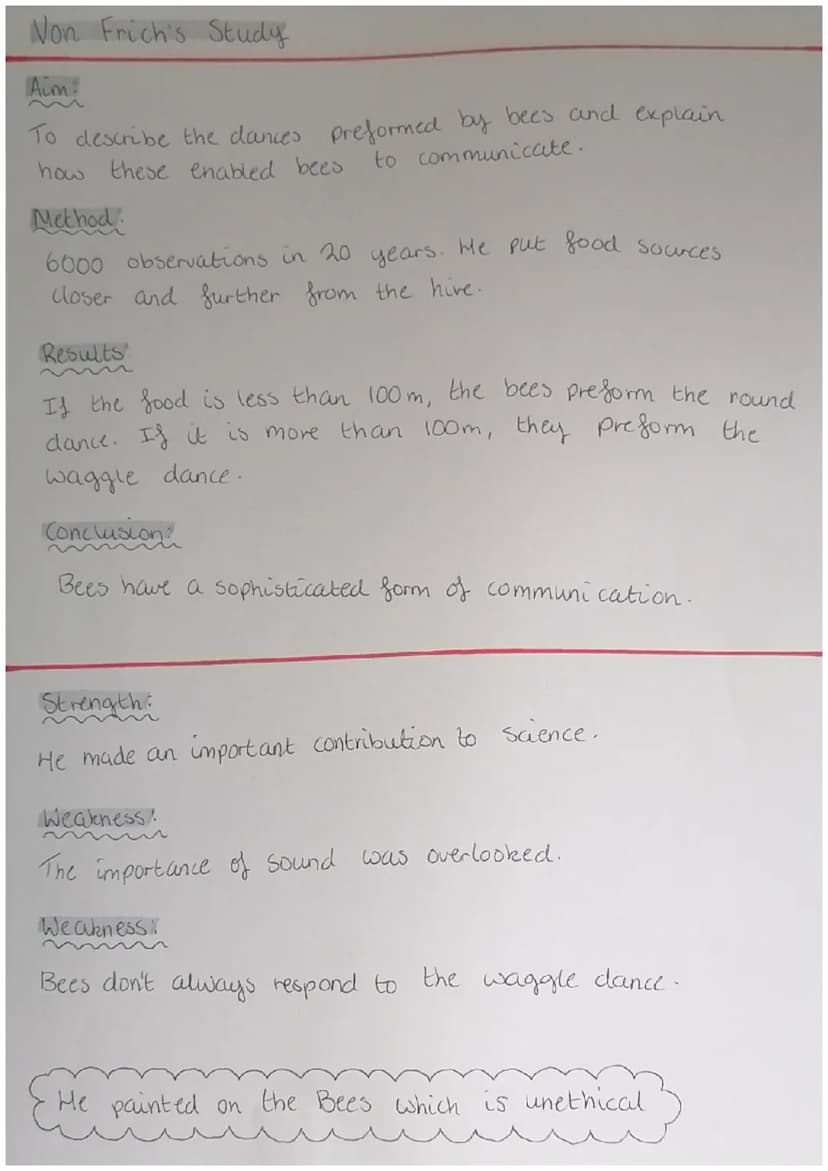 Von Frich's Study
Aim:
To describe the dances preformed by bees and explain
how these enabled bees to communicate.
Method:
6000 observations in 20 years. He put food sources
closer and further from the hive.
Results:
If the food is less than 100m, the bees preform the round
dance. If it is more than 100m, they preform the
waggle dance.
Conclusion:
Bees have a sophisticated form of communication.
Strength:
He made an important contribution to science.
Weakness:
The importance of sound was overlooked.
Weakness:
Bees don't always respond to the waggle dance.
He painted on the Bees which is unethical